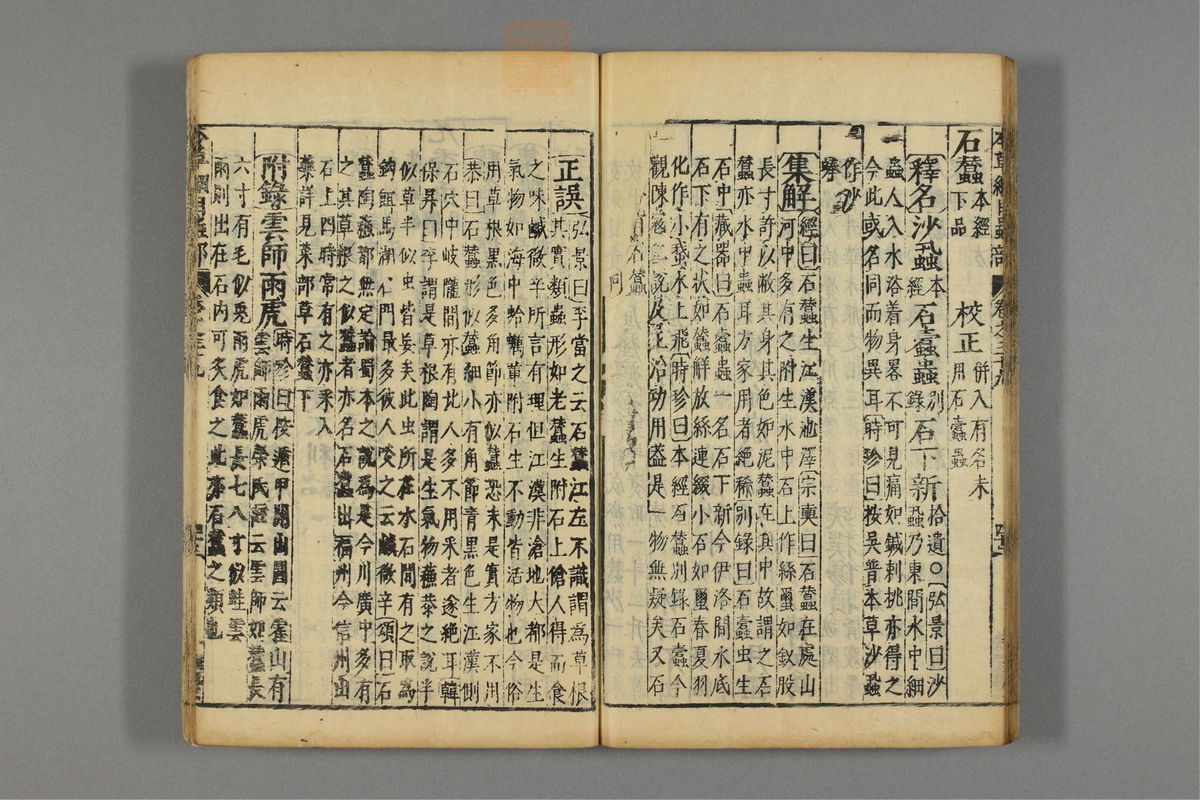 本草綱目蟲部 卷之三十九
石蠶本經下品 校正併入有名未用石蠹蟲
釋名沙蝨本經石蠹蟲別錄石下新婦拾遺○弘景曰沙
蝨乃東間水中細
蟲人入水浴着身畧不可見痛如鍼刺挑亦得之
今此或名同而物異耳時珍曰按吳普本草沙蝨
作沙
集解經曰石蠶生江漢池澤宗奭曰石蠶在處山
河中多有之附生水中石上作絲蠒如釵股
長寸許以敝其身其色如泥蠶在其中故謂之石
蠶亦水中蟲耳方家用者絶稀別錄曰石蠹虫生
石中藏器曰石蠹蟲一名石下新今伊洛間水底
石下有之狀如蠶解放絲連綴小石如蠒春夏羽
化作小蛾水上飛時珍曰本經石蠶別錄石蠹今
觀陳氏之說及主治功用蓋是一物無疑矣又石
石蠶
同
正誤弘景曰李當之云石蠶江左不識謂為草根
其實類蟲形如老蠶生附石上傖人得而食
之味鹹微辛所言有理但江漢非傖地大都是生
氣物如海中蛤蠣輩附石生不動皆活物也今俗
用草根黑色多角節亦似蠶恐未是實方家不用
恭曰石蠶形似蠶細小有角節青黑色生江漢側
石穴中岐隴間亦有北人多不用采者遂絶耳韓
保昇曰李謂是草根陶謂是生氣物蘓恭之說半
似草半似虫皆妄矣此虫所在水石間有之取為
鈎餌馬湖石門最多彼人啖之云鹹微辛頌曰石
蠶陶蘓都無定論蜀本之說為是今川廣中多有
之其草根之似蠶者亦名石蠶出福州今信州山
石上四時常有之亦采入
藥詳見菜部草石蠶下
附錄雲師雨虎時珍曰按遁甲開山圖云霍山有
雲師雨虎榮氏註云雲師如蠶長
六寸有毛似兎雨虎如蠶長七八寸似蛭雲
雨則出在石内可炙食之此亦石蠶之類也